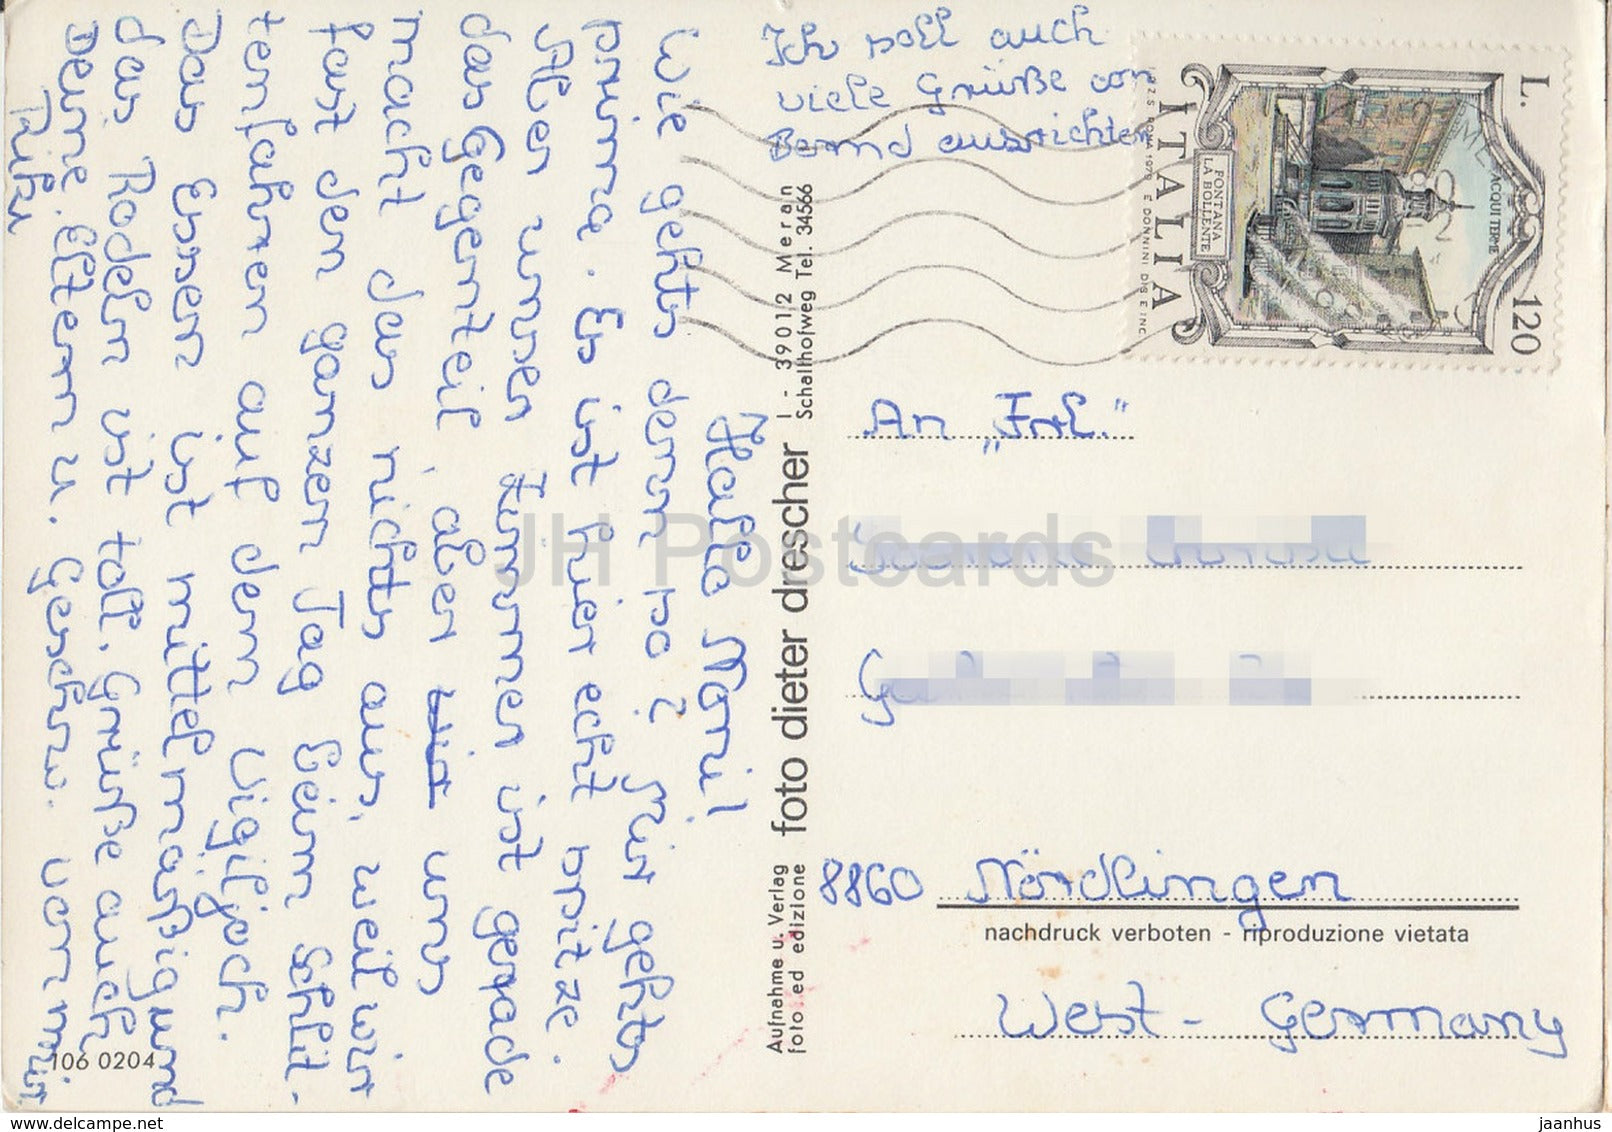 Hallo Moni!
Wie gehts denn so? Mir gehts
prima. Es ist hier echt spitze.
Aber unser Zimmer ist gerade
das Gegenteil, aber uns
macht das nichts aus, weil wir
fast den ganzen Tag beim Schlit-
tenfahren auf dem Vigiljoch.
Das Essen ist mittelmäßig und
das Rodeln ist toll. Grüße auch
Deine Eltern u. Geschw. von mir
Ich soll auch
viele Grüße von
Bernd ausrichten
I - 39012 Meran
Schallhofweg Tel. 34566
foto dieter drescher
Aufnahme u. Verlag
foto ed edizione
106 0204
L. 120
ITALIA
FONTANA
LA BOLLENTE
ACQUI TERME
I.P.Z.S. ROMA 1979 E DONNINI DIS E INC
An "Frl."
8860 Nördlingen
nachdruck verboten - riproduzione vietata
West - Germany
JH Postcards
www.delcampe.net
jaanhus